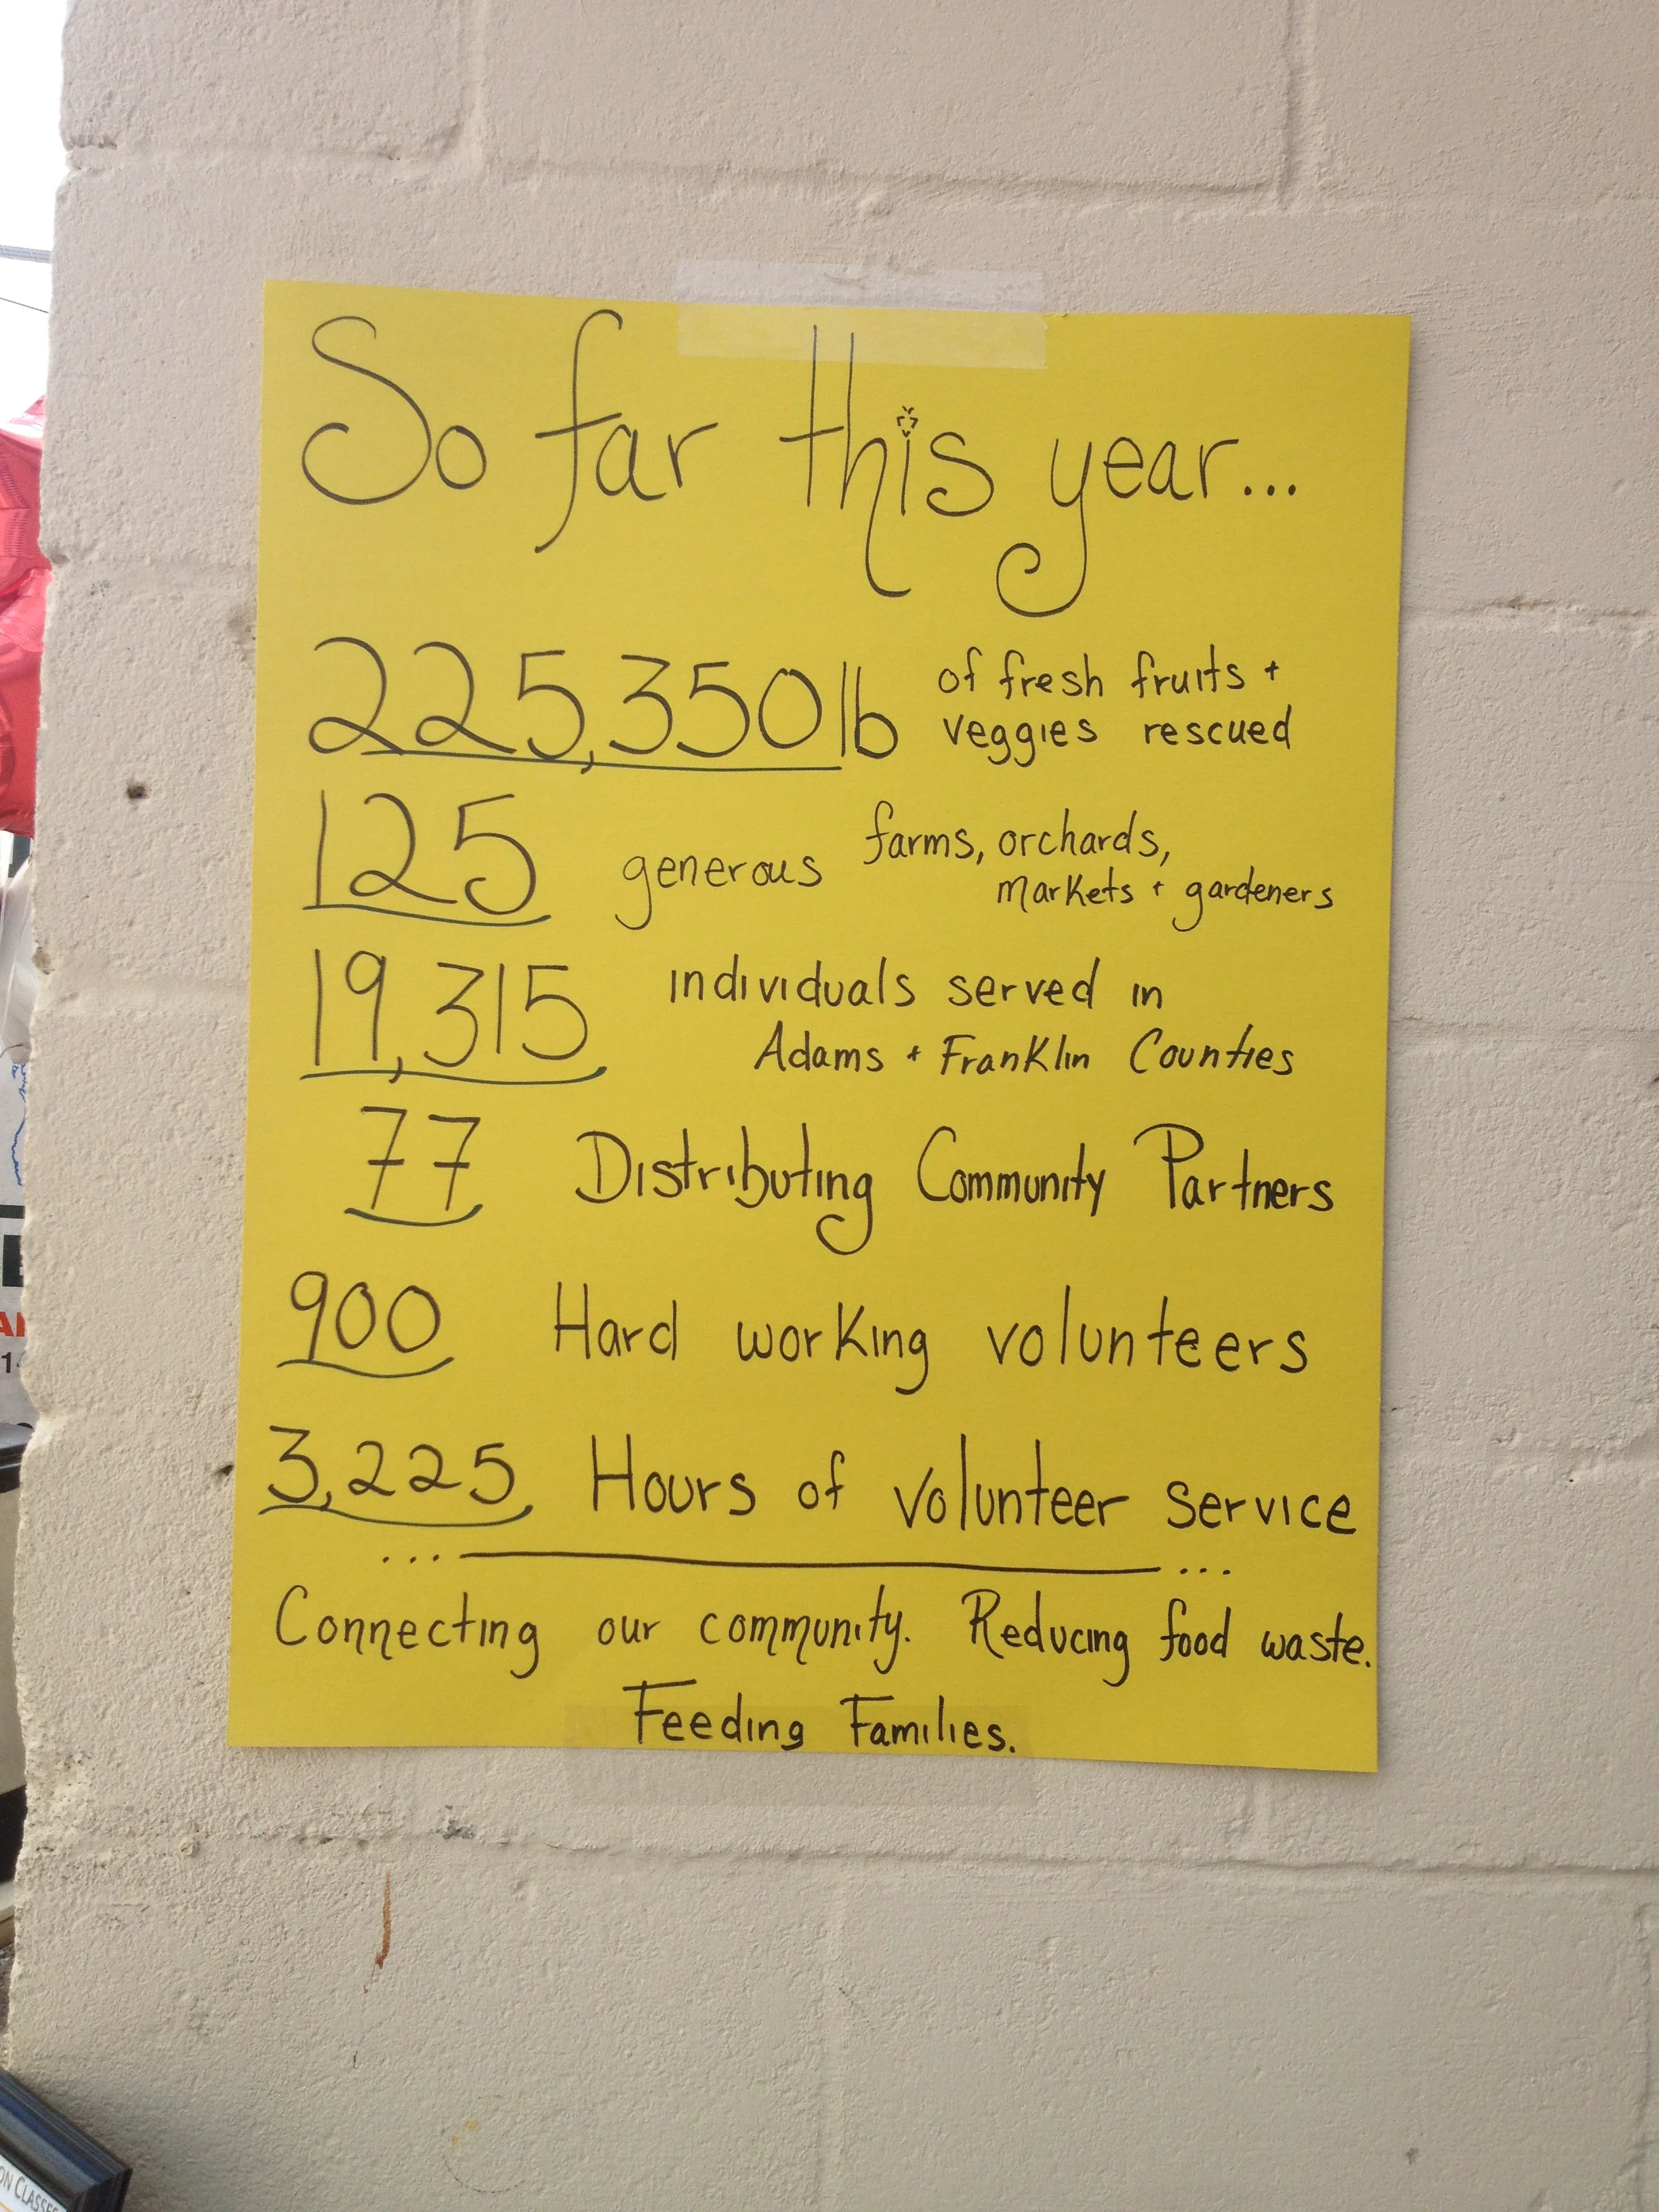 So far this year...
225,350 lb of fresh fruits +
veggies rescued
125 generous farms, orchards,
markets + gardeners
19,315 individuals served in
Adams + Franklin Counties
77 Distributing Community Partners
900 Hard working volunteers
3,225 Hours of volunteer service
... ...
Connecting our community. Reducing food waste.
Feeding Families.
ON CLASSES